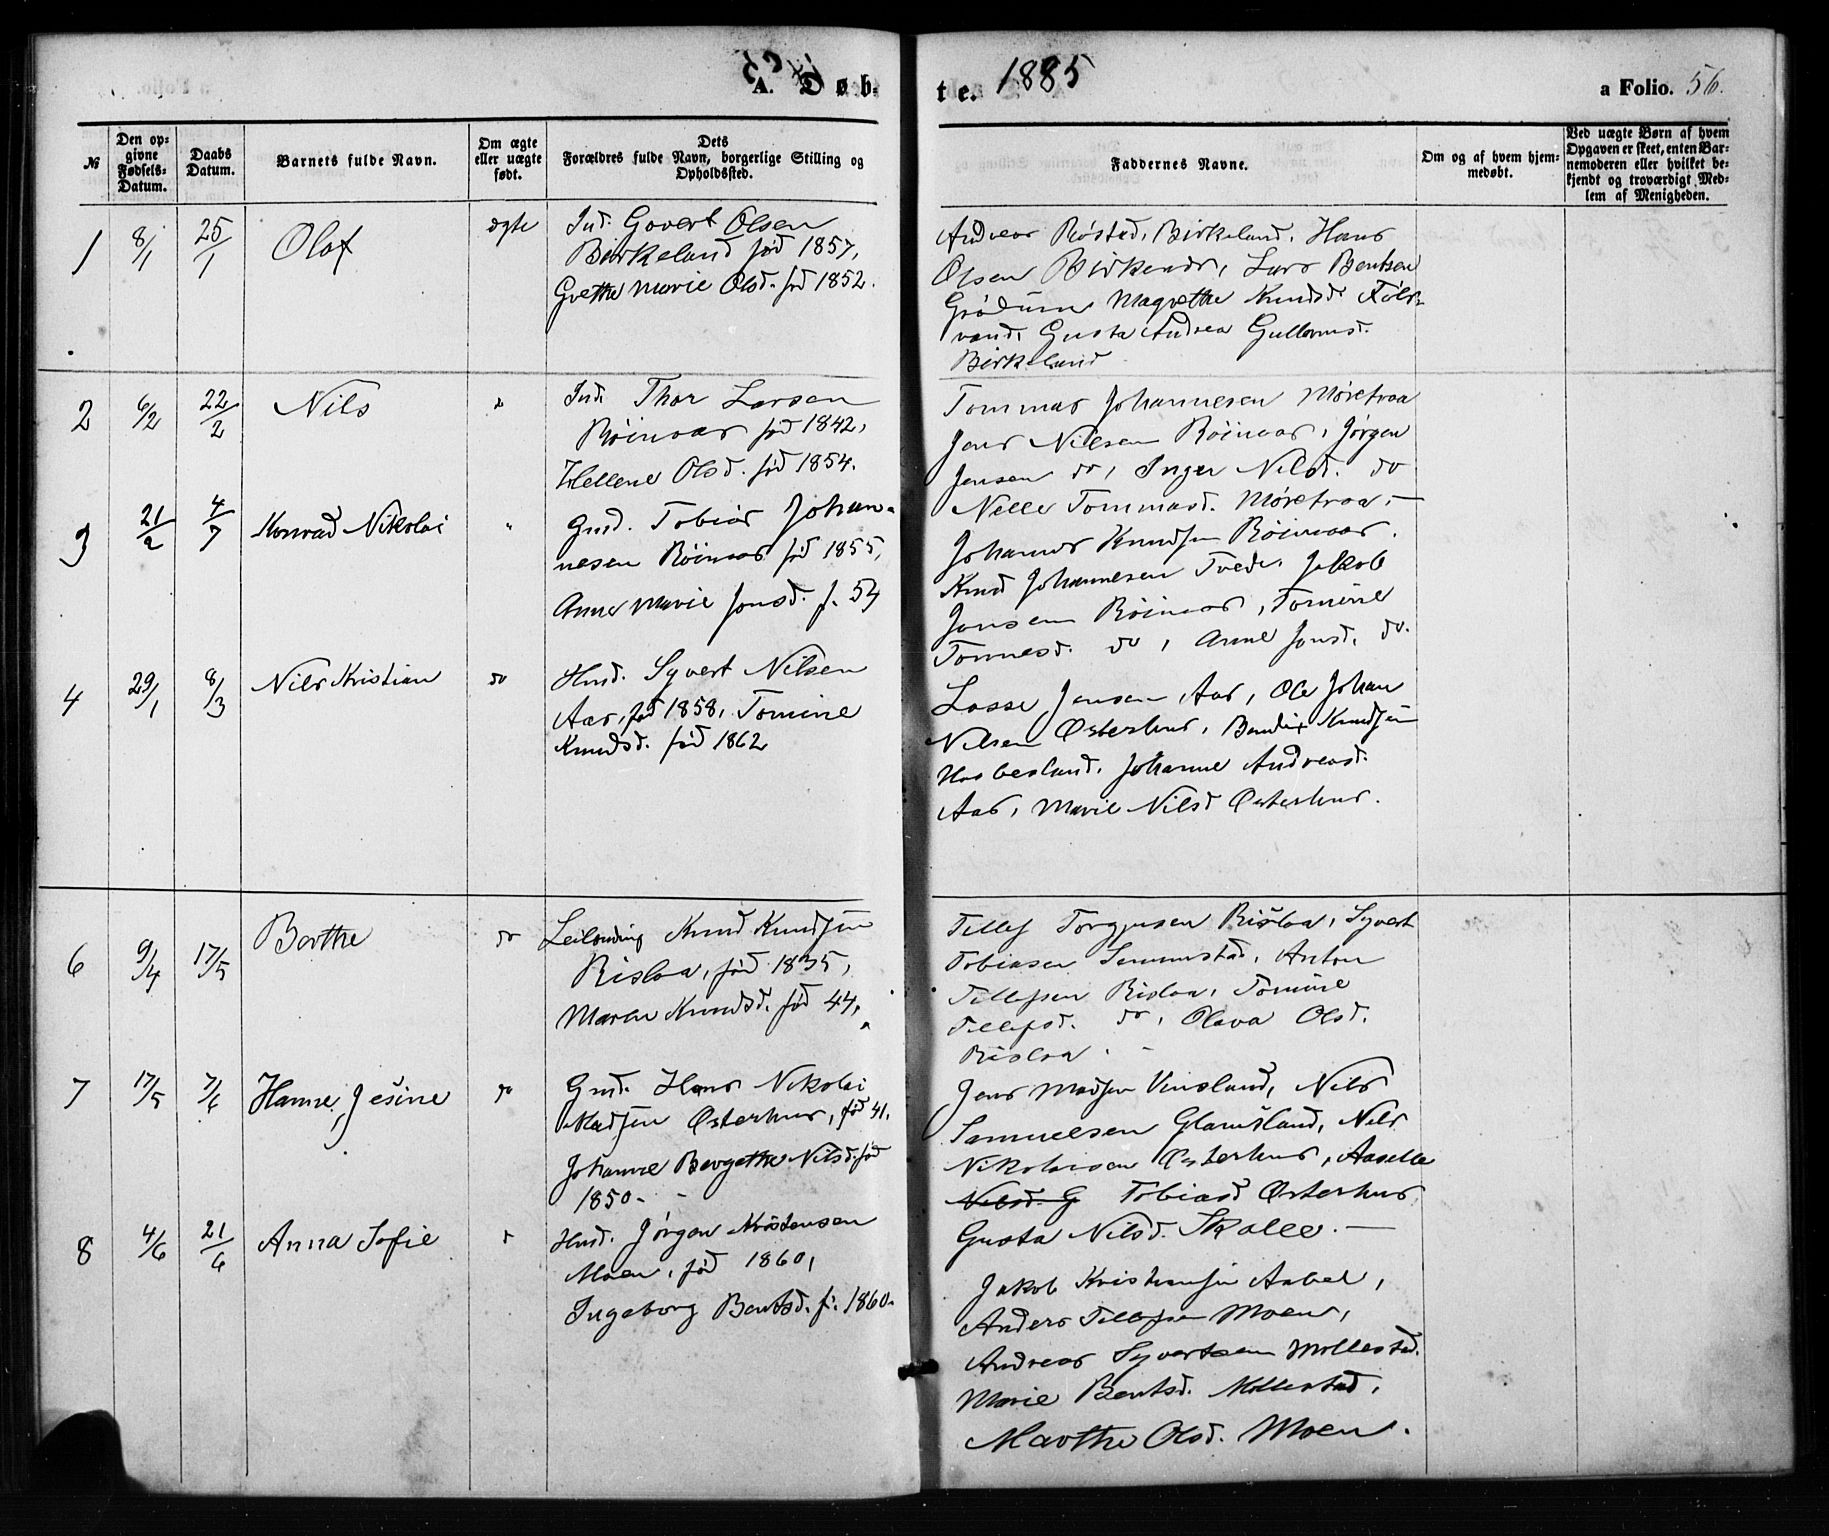 A. Døb-
te. 1885
a Folio. 56.
№
Den op-
givne
Fødsels-
Datum.
Daabs
Datum.
Barnets fulde Navn.
Om ægte
eller uægte
født.
Dets
Forældres fulde Navn, borgerlige Stilling og
Opholdssted.
Faddernes Navne.
Om og af hvem hjem-
medøbt.
Ved uægte Børn af hvem
Opgaven er skeet, enten Bar-
nemoderen eller hvilket be-
kjendt og troværdigt Med-
lem af Menigheden.
1 8/1 25/1 Olaf ægte
Ind. Govert Olsen
Birkeland fød 1857,
Grethe Marie Olsd. fød 1852.
Andreas Røstad, Birkeland, Hans
Olsen Birkenes, Lars Bentsen
Grødum Magrethe Knudsd.
vand, Gusta Andrea Gullovmsd.
Birkeland
2 6/2 22/2 Nils
Ind. Thor Larsen
Røinaas fød 1842,
Hellene Olsd. fød 1854.
Tommas Johannesen Møretraa
Jens Nilsen Røinaas, Jørgen
Jensen do, Inger Nilsd. do
Nelle Tommasd. Møretraa, —
3 21/2 4/7 Konrad Nikolai "
Gmd. Tobias Johan-
nesen Røinaas fød 1855,
Anne Marie Jonsd. f. 54
Johannes Knudsen Røinaas.
Knud Johannesen Tvede, Jakob
Jonsen Røinaas, Tomine
Tonnesd. do, Anne Jonsd. do.
4 29/1 8/3 Nils Kristian do
Hmd. Syvert Nilsen
Aas, fød 1858, Tomine
Knudsd. fød 1862
Lasse Jensen Aas, Ole Johan
Nilsen Østerhus, Bendix Knudsen
Hasbesland, Johanne Andreasd.
Aas, Marie Nilsd Østerhus.
6 9/4 17/5 Berthe do
Leilending Knud Knudsen
Risloa, fød 1835,
Maren Knudsd. fød 44,
Tellef Torgjusen Risloa, Syvert
Tobiasen Senumstad, Anton
Tellefsen Risloa, Tomine
Tellefsd. do, Olava Olsd.
Risloa. -
7 17/5 7/6 Hanne Jesine do
Gmd. Hans Nikolai
Madsen Østerhus, fød 41,
Johanne Bergethe Nilsd. fød
1850. -
Jens Madsen Vinsland, Nils
Samuelsen Glamsland, Nils
Nikolaisen Østerhus, Aaselle
Nilsd. G Tobiasd Østerhus
Gusta Nilsd. Skalle. —
8 4/6 21/6 Anna Sofie
Hmd. Jørgen Kristensen
Moen, fød 1860,
Ingeborg Bentsd. f. 1860.
Jakob Kristiansen Aabel,
Anders Tellefsen Moen,
Andreas Syvertsen Mollestad.
Marie Bentsd. Mollestad,
Marthe Olsd. Moen.